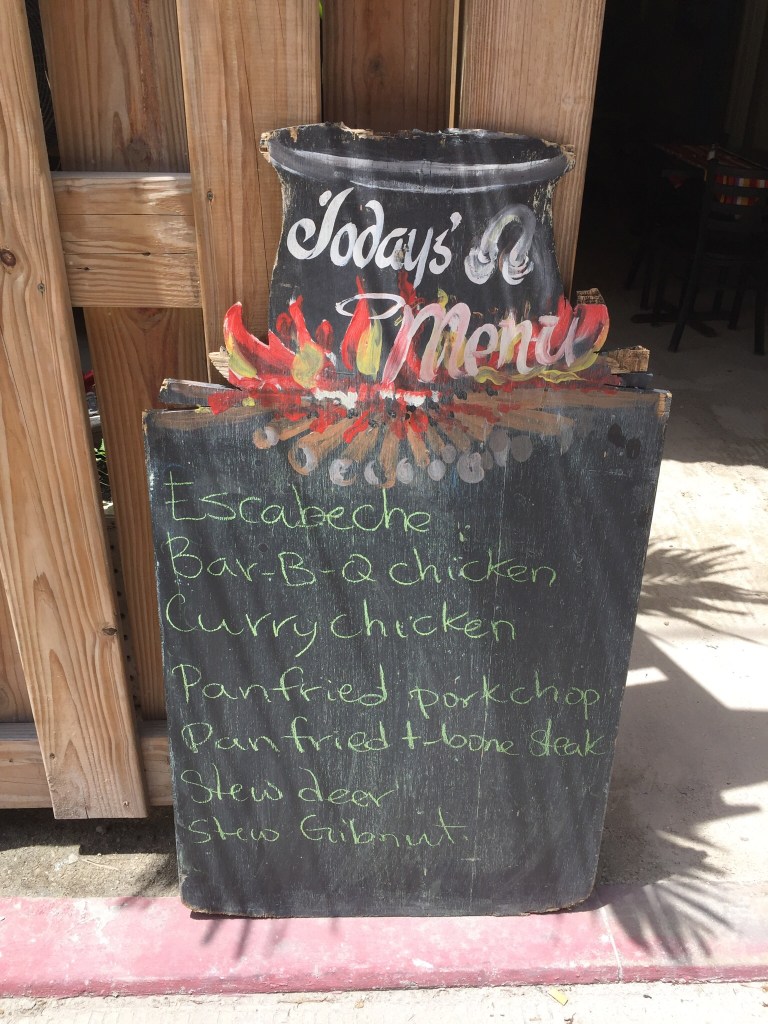 Todays'
Menu
Escabeche
Bar-B-Q chicken
Curry chicken
Pan fried porkchop
Pan fried t-bone steak
Stew deer
Stew Gibnut